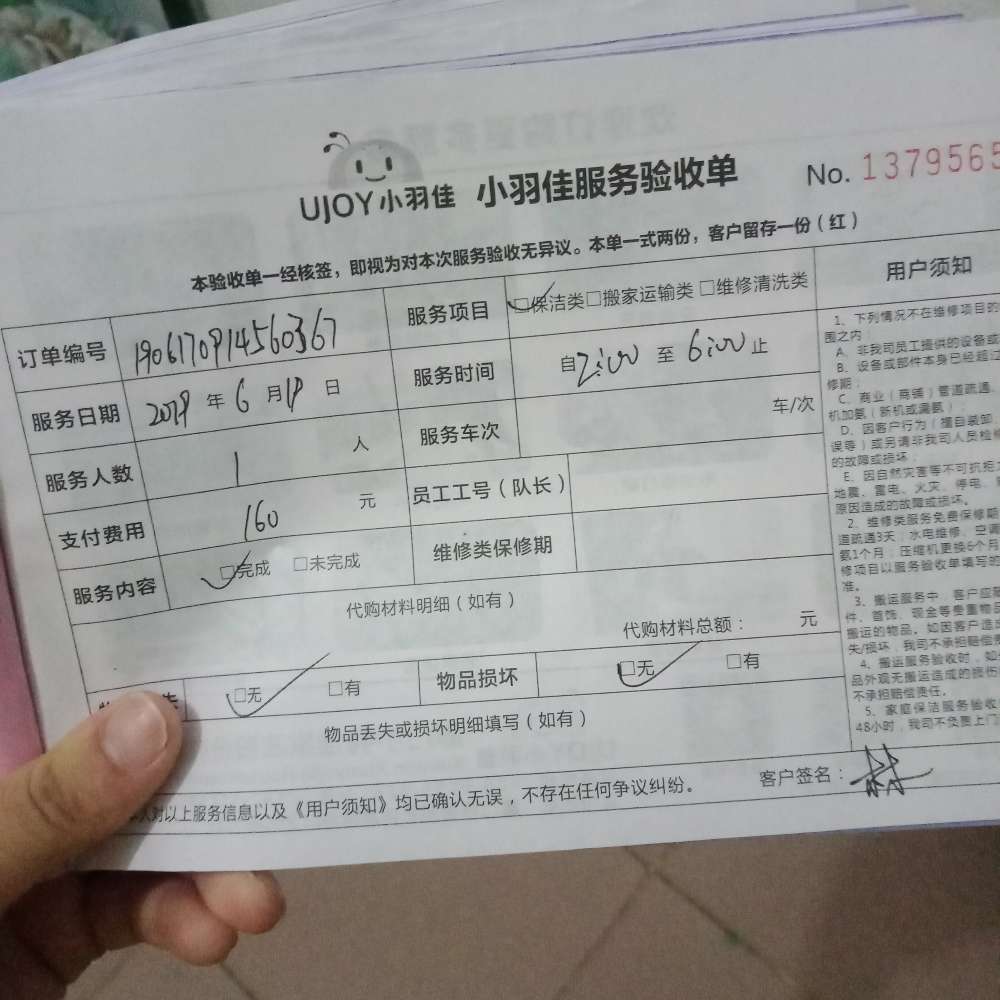 UJOY小羽佳 小羽佳服务验收单 No. 1379565
本验收单一经核签，即视为对本次服务验收无异议。本单一式两份，客户留存一份（红）
订单编号 190617091456​0367
服务项目 □保洁类□搬家运输类 □维修清洗类
服务日期 2019 年 6 月 19 日
服务时间 自 2:00 至 6:00 止
服务人数 1 人
服务车次 车/次
支付费用 160 元
员工工号（队长）
服务内容 □完成 □未完成
维修类保修期
代购材料明细（如有）
代购材料总额： 元
失 □无 □有
物品损坏 □无 □有
物品丢失或损坏明细填写（如有）
人对以上服务信息以及《用户须知》均已确认无误，不存在任何争议纠纷。
客户签名：
用户须知
1、下列情况不在维修项目的
围之内：
A、非我司员工提供的设备或
B、设备或部件本身已经超过
修期；
C、商业（商铺）管道疏通、
机加氨（新机或漏氨）；
D、因客户行为（擅自装卸
误等）或另请非我司人员检修
的故障或损坏；
E、因自然灾害等不可抗拒
地震、雷电、火灾、停电、
原因造成的故障或损坏。
2、维修类服务免费保修期
道疏通3天；水电维修、空调
氨1个月；压缩机更换6个月
修项目以服务验收单填写的
准。
3、搬运服务中，客户应
件、首饰、现金等贵重物品
搬运的物品。如因客户造成
失/损坏，我司不承担赔偿
4、搬运服务验收时，如
品外观无搬运造成的损伤
不承担赔偿责任。
5、家庭保洁服务验收
48小时，我司不负责上门